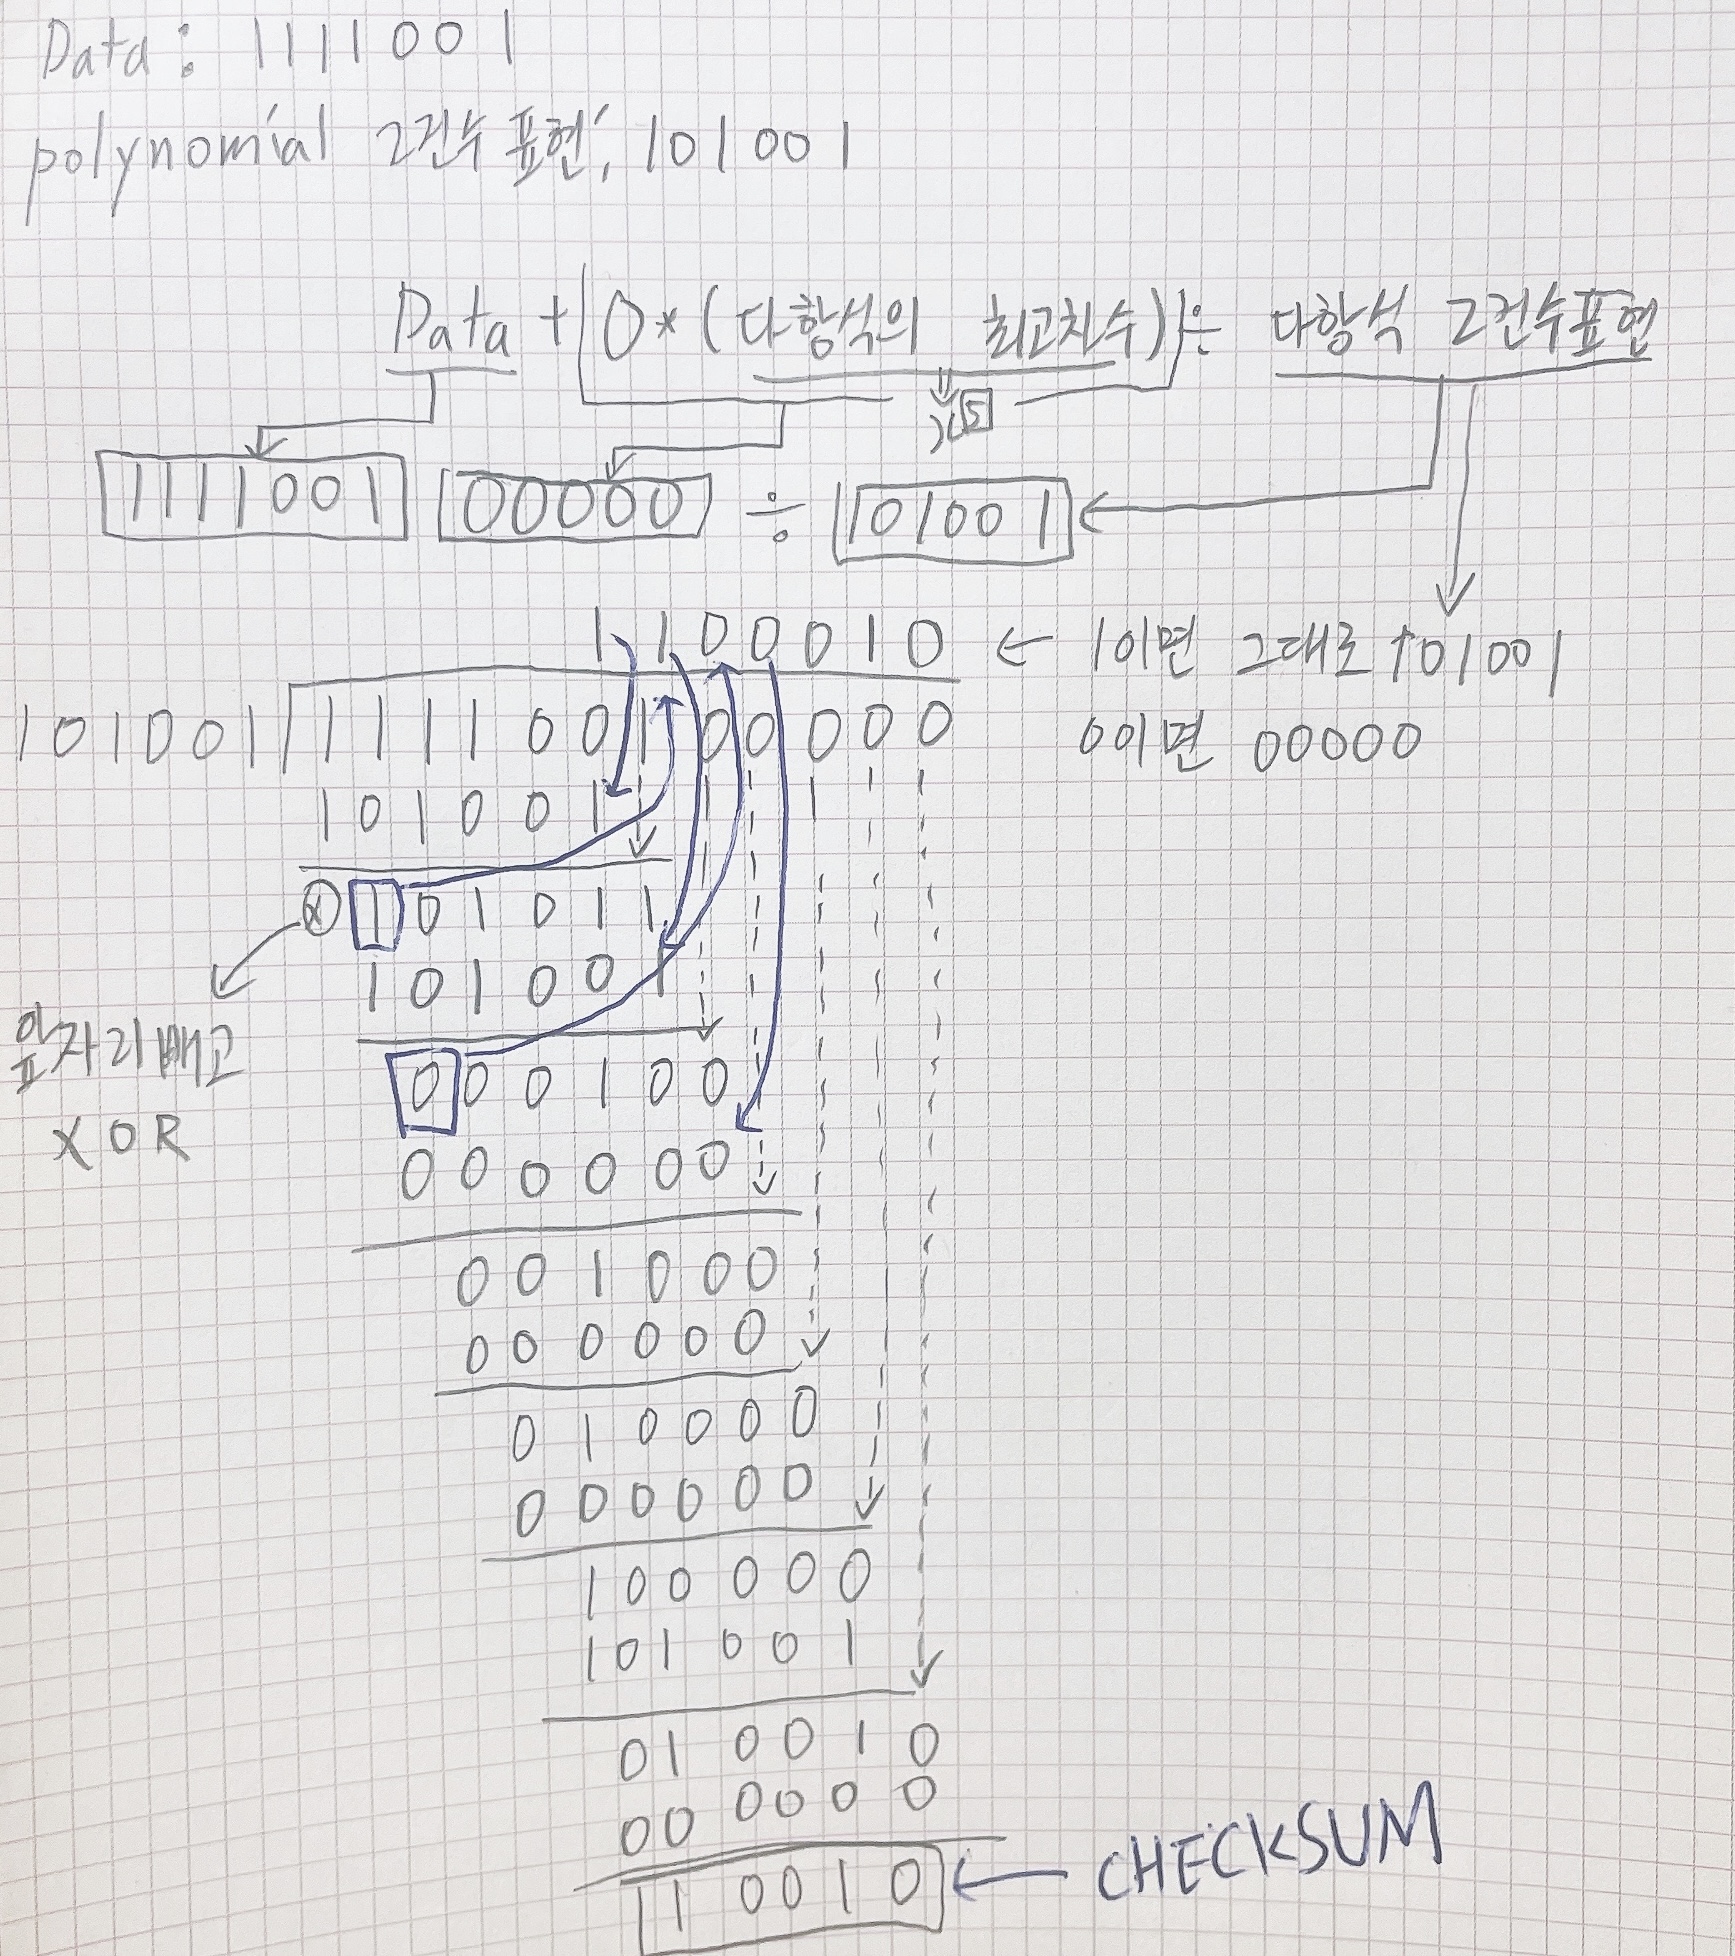 Data : 1111001
polynomial 2진수 표현; 101001
Data + (0*(다항식의 최고차수)) ÷ 다항식 2진수표현
x5
1111001 00000 ÷ 101001
1100010 ← 1이면 그대로 101001
101001 111100100000 0이면 00000
101001
ⓧ 101011
101001
앞자리빼고
000100
XOR
000000
001000
000000
010000
000000
100000
101001
010010
000000
10010 ← CHECKSUM